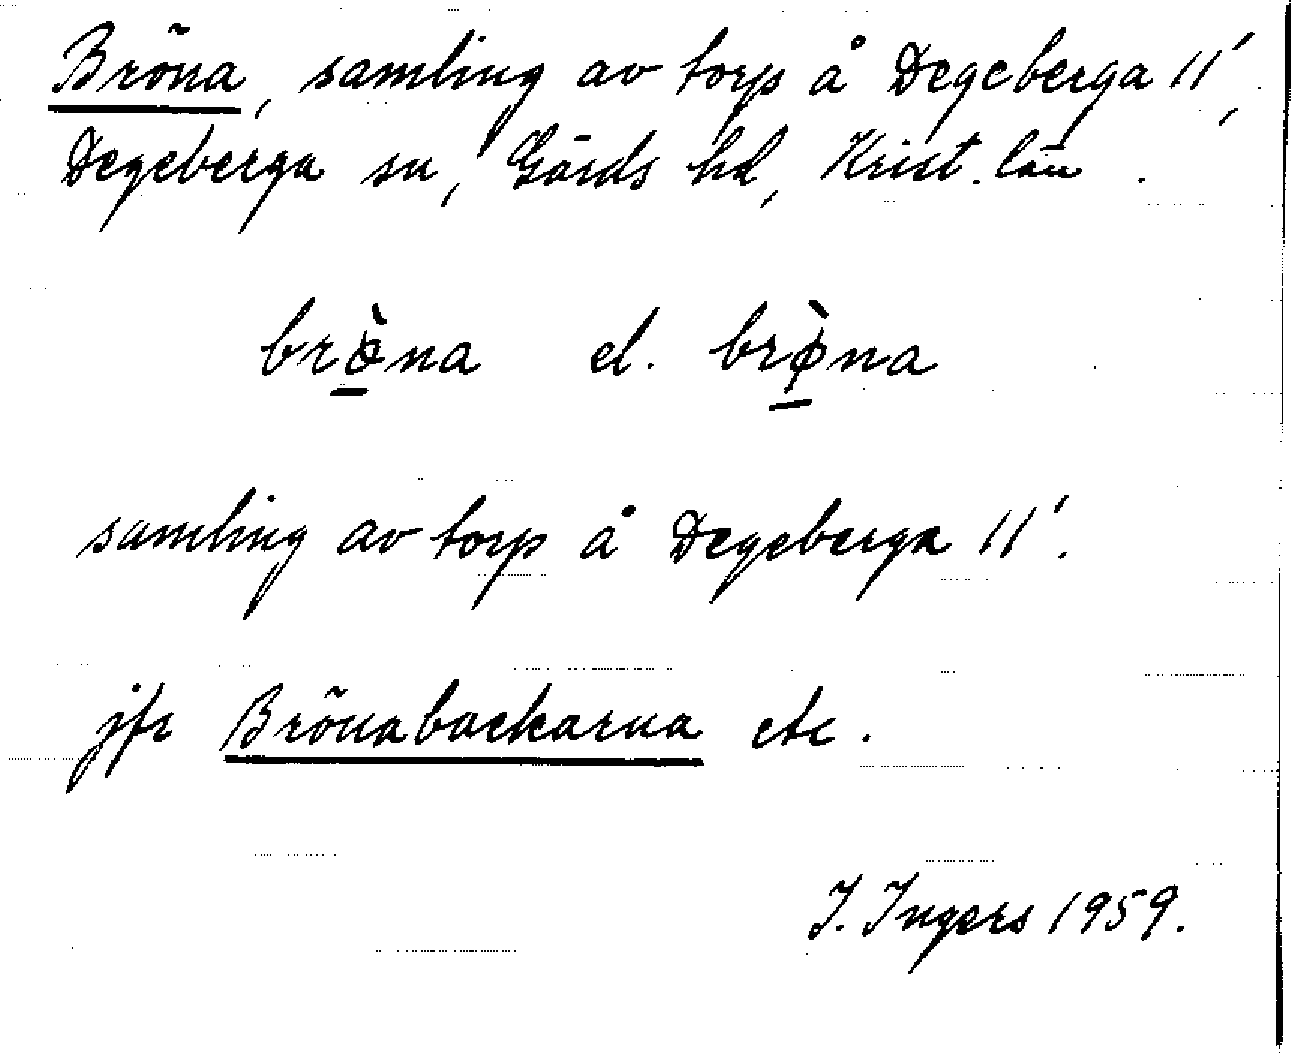 Bröna, samling av torp å Degeberga 11',
Degeberga sn, Gärds hd, Krist. län.
brö̀na el. brø̀na
samling av torp å Degeberga 11'.
jfr Brönabackarna etc.
I. Ingers 1959.